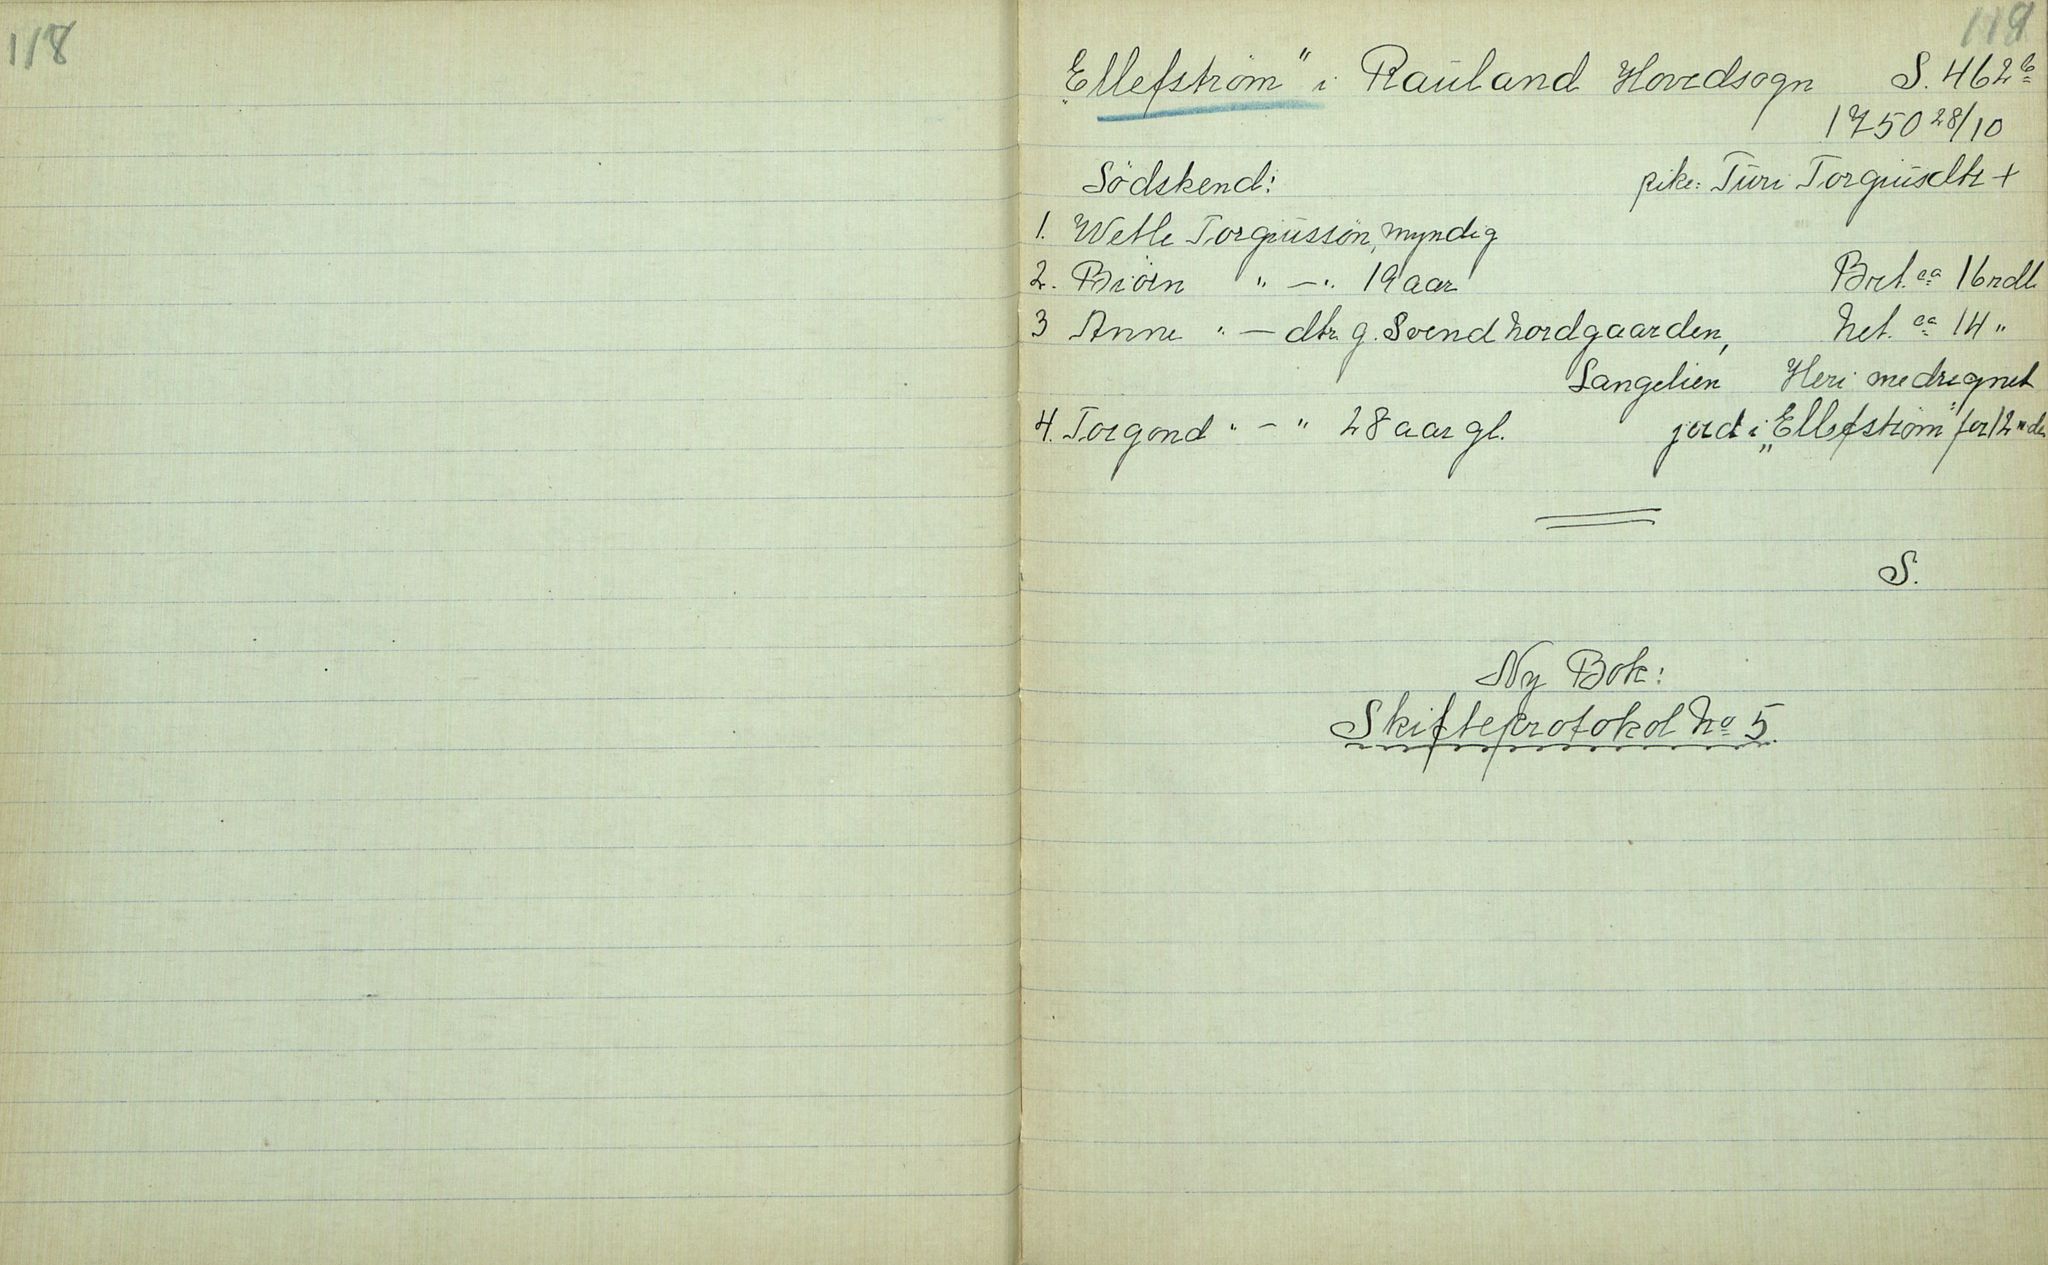 118
119
"Ellefstrøm" i Rauland Hovedsogn S. 462b
1750 28/10
Södskend: pike: Turi Torgiusdtr +
1. Wetle Torgiussøn, myndig
2. Biörn " — " 19 aar Brt. ca 16 rdl.
3 Anne " — dtr. g. Svend Nordgaarden, Net. ca 14 "
Langelien Heri medregnet
4. Torgond " — " 28 aar gl. jord i „Ellefstrøm" for 12
S.
Ny Bok:
Skifteprotokol No 5.